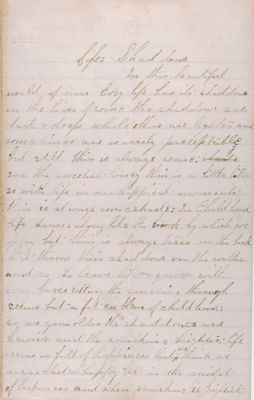 Life's Shaddows
In this beautiful
world of ours Evry life has its shaddows
in the lives of some the shaddows are
dark & deep while others are lighter and
sometimes are scarcely perceptible
But still there is always some:
in the sweetest honey there is a little
so with life in our happiest moments
there is always some shade: In Childhood
life dances along like the brook by which we
play but there is always trees on the bank
that throws their shaddows on the water
and as the leaves
ever lets the sunshine through
seems but a of childhood:
as we grow older the shaddows are
heavier and the sunshine brighter: life
seems so full of happiness that we think we
were never so happy but in the midst
of happiness and when sunshine is brightest